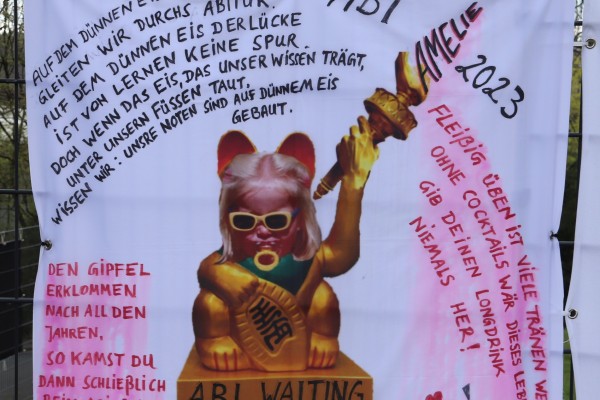 ABI
AUF DEM DÜNNEN
GLEITEN WIR DURCHS ABITUR.
AUF DEM DÜNNEN EIS DER LÜCKE
IST VON LERNEN KEINE SPUR.
DOCH WENN DAS EIS, DAS UNSER WISSEN TRÄGT,
UNTER UNSERN FÜSSEN TAUT,
WISSEN WIR: UNSRE NOTEN SIND AUF DÜNNEM EIS
GEBAUT.
AMELIE
2023
FLEIẞIG ÜBEN IST VIELE TRÄNEN
OHNE COCKTAILS WÄR DIESES
GIB DEINEN LONGDRINK
NIEMALS HER!
DEN GIPFEL
ERKLOMMEN
NACH ALL DEN
JAHREN,
SO KAMST DU
DANN SCHLIEẞLICH
ABI WAITING